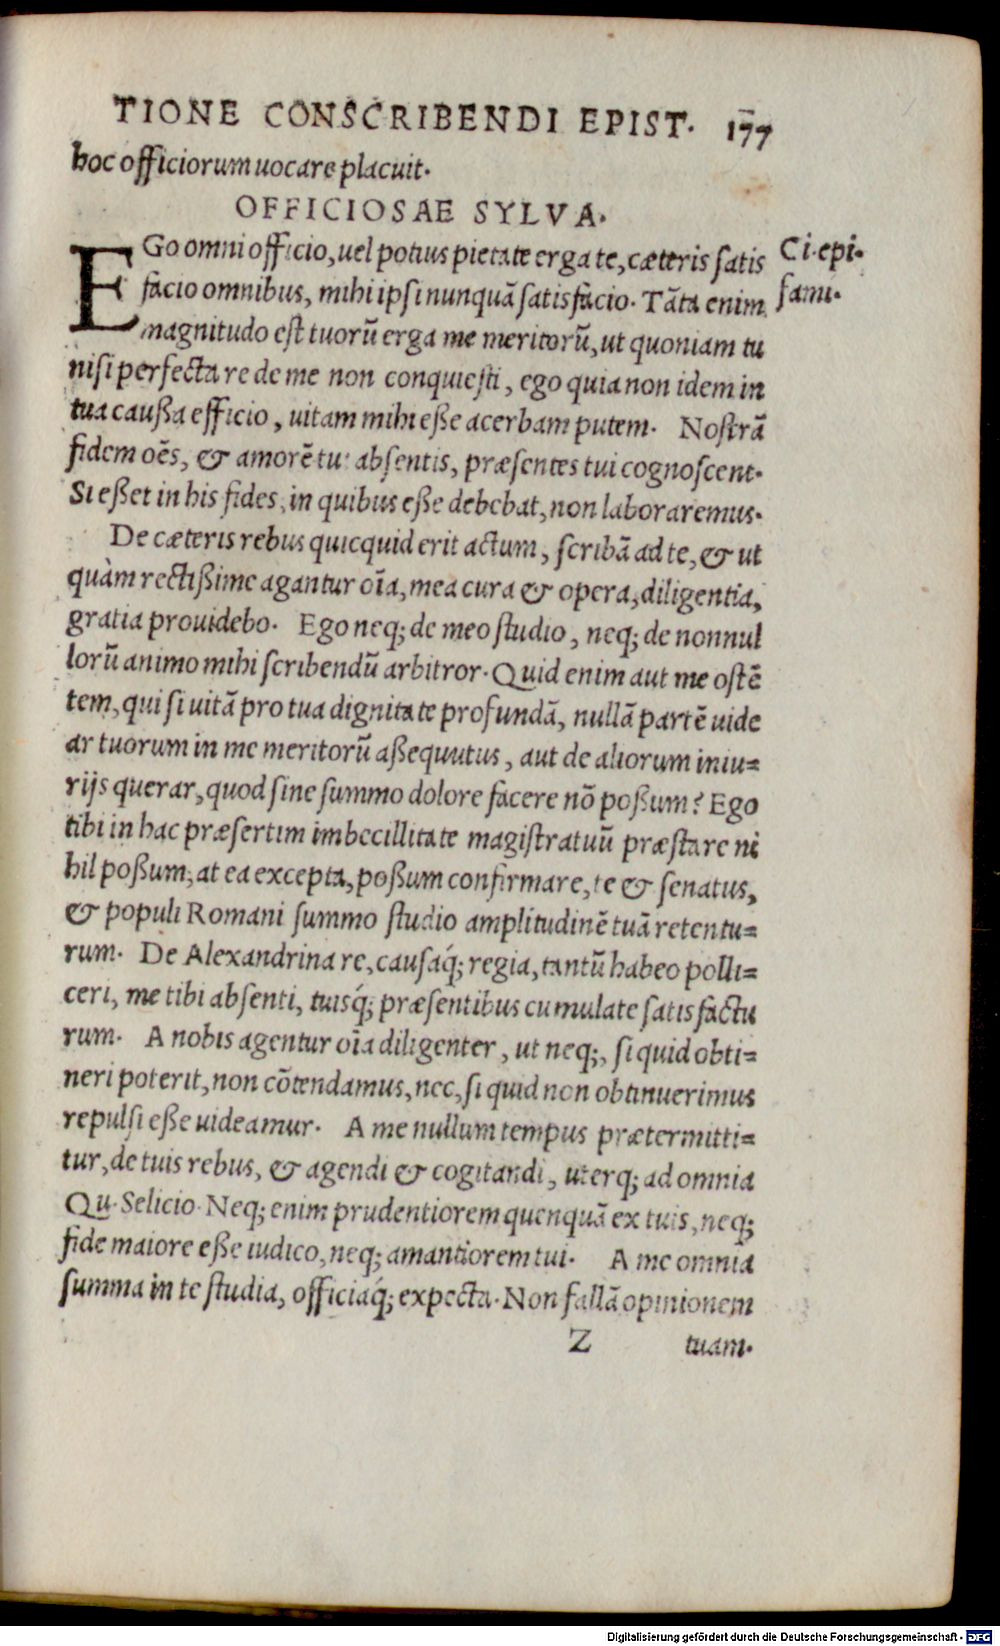 TIONE CONSCRIBENDI EPIST. 177
hoc officiorum uocare placuit.
OFFICIOSAE SYLVA.
EGo omni officio, uel potius pietate erga te, cæteris satis
Ci. epi.
facio omnibus, mihi ipsi nunquã satisfacio. Tãta enim
fami.
magnitudo est tuorũ erga me meritorũ, ut quoniam tu
nisi perfecta re de me non conquiesti, ego quia non idem in
tua caußa efficio, uitam mihi eße acerbam putem. Nostrã
fidem oẽs, & amorẽ tui absentis, præsentes tui cognoscent.
Si eßet in his fides, in quibus eße debebat, non laboraremus.
De cæteris rebus quicquid erit actum, scribã ad te, & ut
quàm rectißime agantur oĩa, mea cura & opera, diligentia,
gratia prouidebo. Ego neq; de meo studio, neq; de nonnul
lorũ animo mihi scribendũ arbitror. Quid enim aut me ostẽ
tem, qui si uitã pro tua dignitate profundã, nullã partẽ uide
ar tuorum in me meritorũ aßequutus, aut de aliorum iniu=
rijs querar, quod sine summo dolore facere nõ poßum? Ego
tibi in hac præsertim imbecillitate magistratuũ præstare ni
hil poßum, at ea excepta, poßum confirmare, te & senatus,
& populi Romani summo studio amplitudinẽ tuã retentu=
rum. De Alexandrina re, causáq; regia, tantũ habeo polli=
ceri, me tibi absenti, tuisq́; præsentibus cumulate satisfactu
rum. A nobis agentur oĩa diligenter, ut neq;, si quid obti=
neri poterit, non cõtendamus, nec, si quid non obtinuerimus
repulsi eße uideamur. A me nullum tempus prætermitti=
tur, de tuis rebus, & agendi & cogitandi, uterq; ad omnia
Qu. Selicio. Neq; enim prudentiorem quenquã ex tuis, neq;
fide maiore eße iudico, neq; amantiorem tui. A me omnia
summa in te studia, officiáq; expecta. Non fallã opinionem
Z tuam.
Digitalisierung gefördert durch die Deutsche Forschungsgemeinschaft - DFG